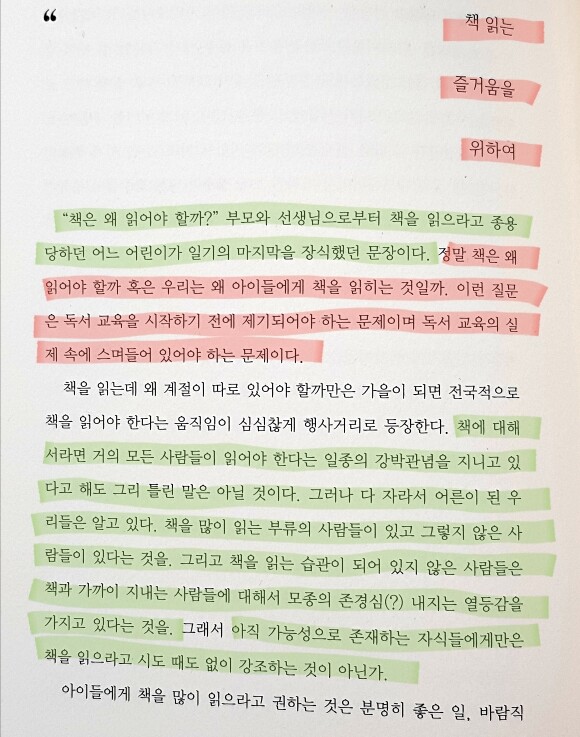 “
책 읽는
즐거움을
위하여
“책은 왜 읽어야 할까?” 부모와 선생님으로부터 책을 읽으라고 종용
당하던 어느 어린이가 일기의 마지막을 장식했던 문장이다. 정말 책은 왜
읽어야 할까 혹은 우리는 왜 아이들에게 책을 읽히는 것일까. 이런 질문
은 독서 교육을 시작하기 전에 제기되어야 하는 문제이며 독서 교육의 실
제 속에 스며들어 있어야 하는 문제이다.
책을 읽는데 왜 계절이 따로 있어야 할까만은 가을이 되면 전국적으로
책을 읽어야 한다는 움직임이 심심찮게 행사거리로 등장한다. 책에 대해
서라면 거의 모든 사람들이 읽어야 한다는 일종의 강박관념을 지니고 있
다고 해도 그리 틀린 말은 아닐 것이다. 그러나 다 자라서 어른이 된 우
리들은 알고 있다. 책을 많이 읽는 부류의 사람들이 있고 그렇지 않은 사
람들이 있다는 것을. 그리고 책을 읽는 습관이 되어 있지 않은 사람들은
책과 가까이 지내는 사람들에 대해서 모종의 존경심(?) 내지는 열등감을
가지고 있다는 것을. 그래서 아직 가능성으로 존재하는 자식들에게만은
책을 읽으라고 시도 때도 없이 강조하는 것이 아닌가.
아이들에게 책을 많이 읽으라고 권하는 것은 분명히 좋은 일, 바람직